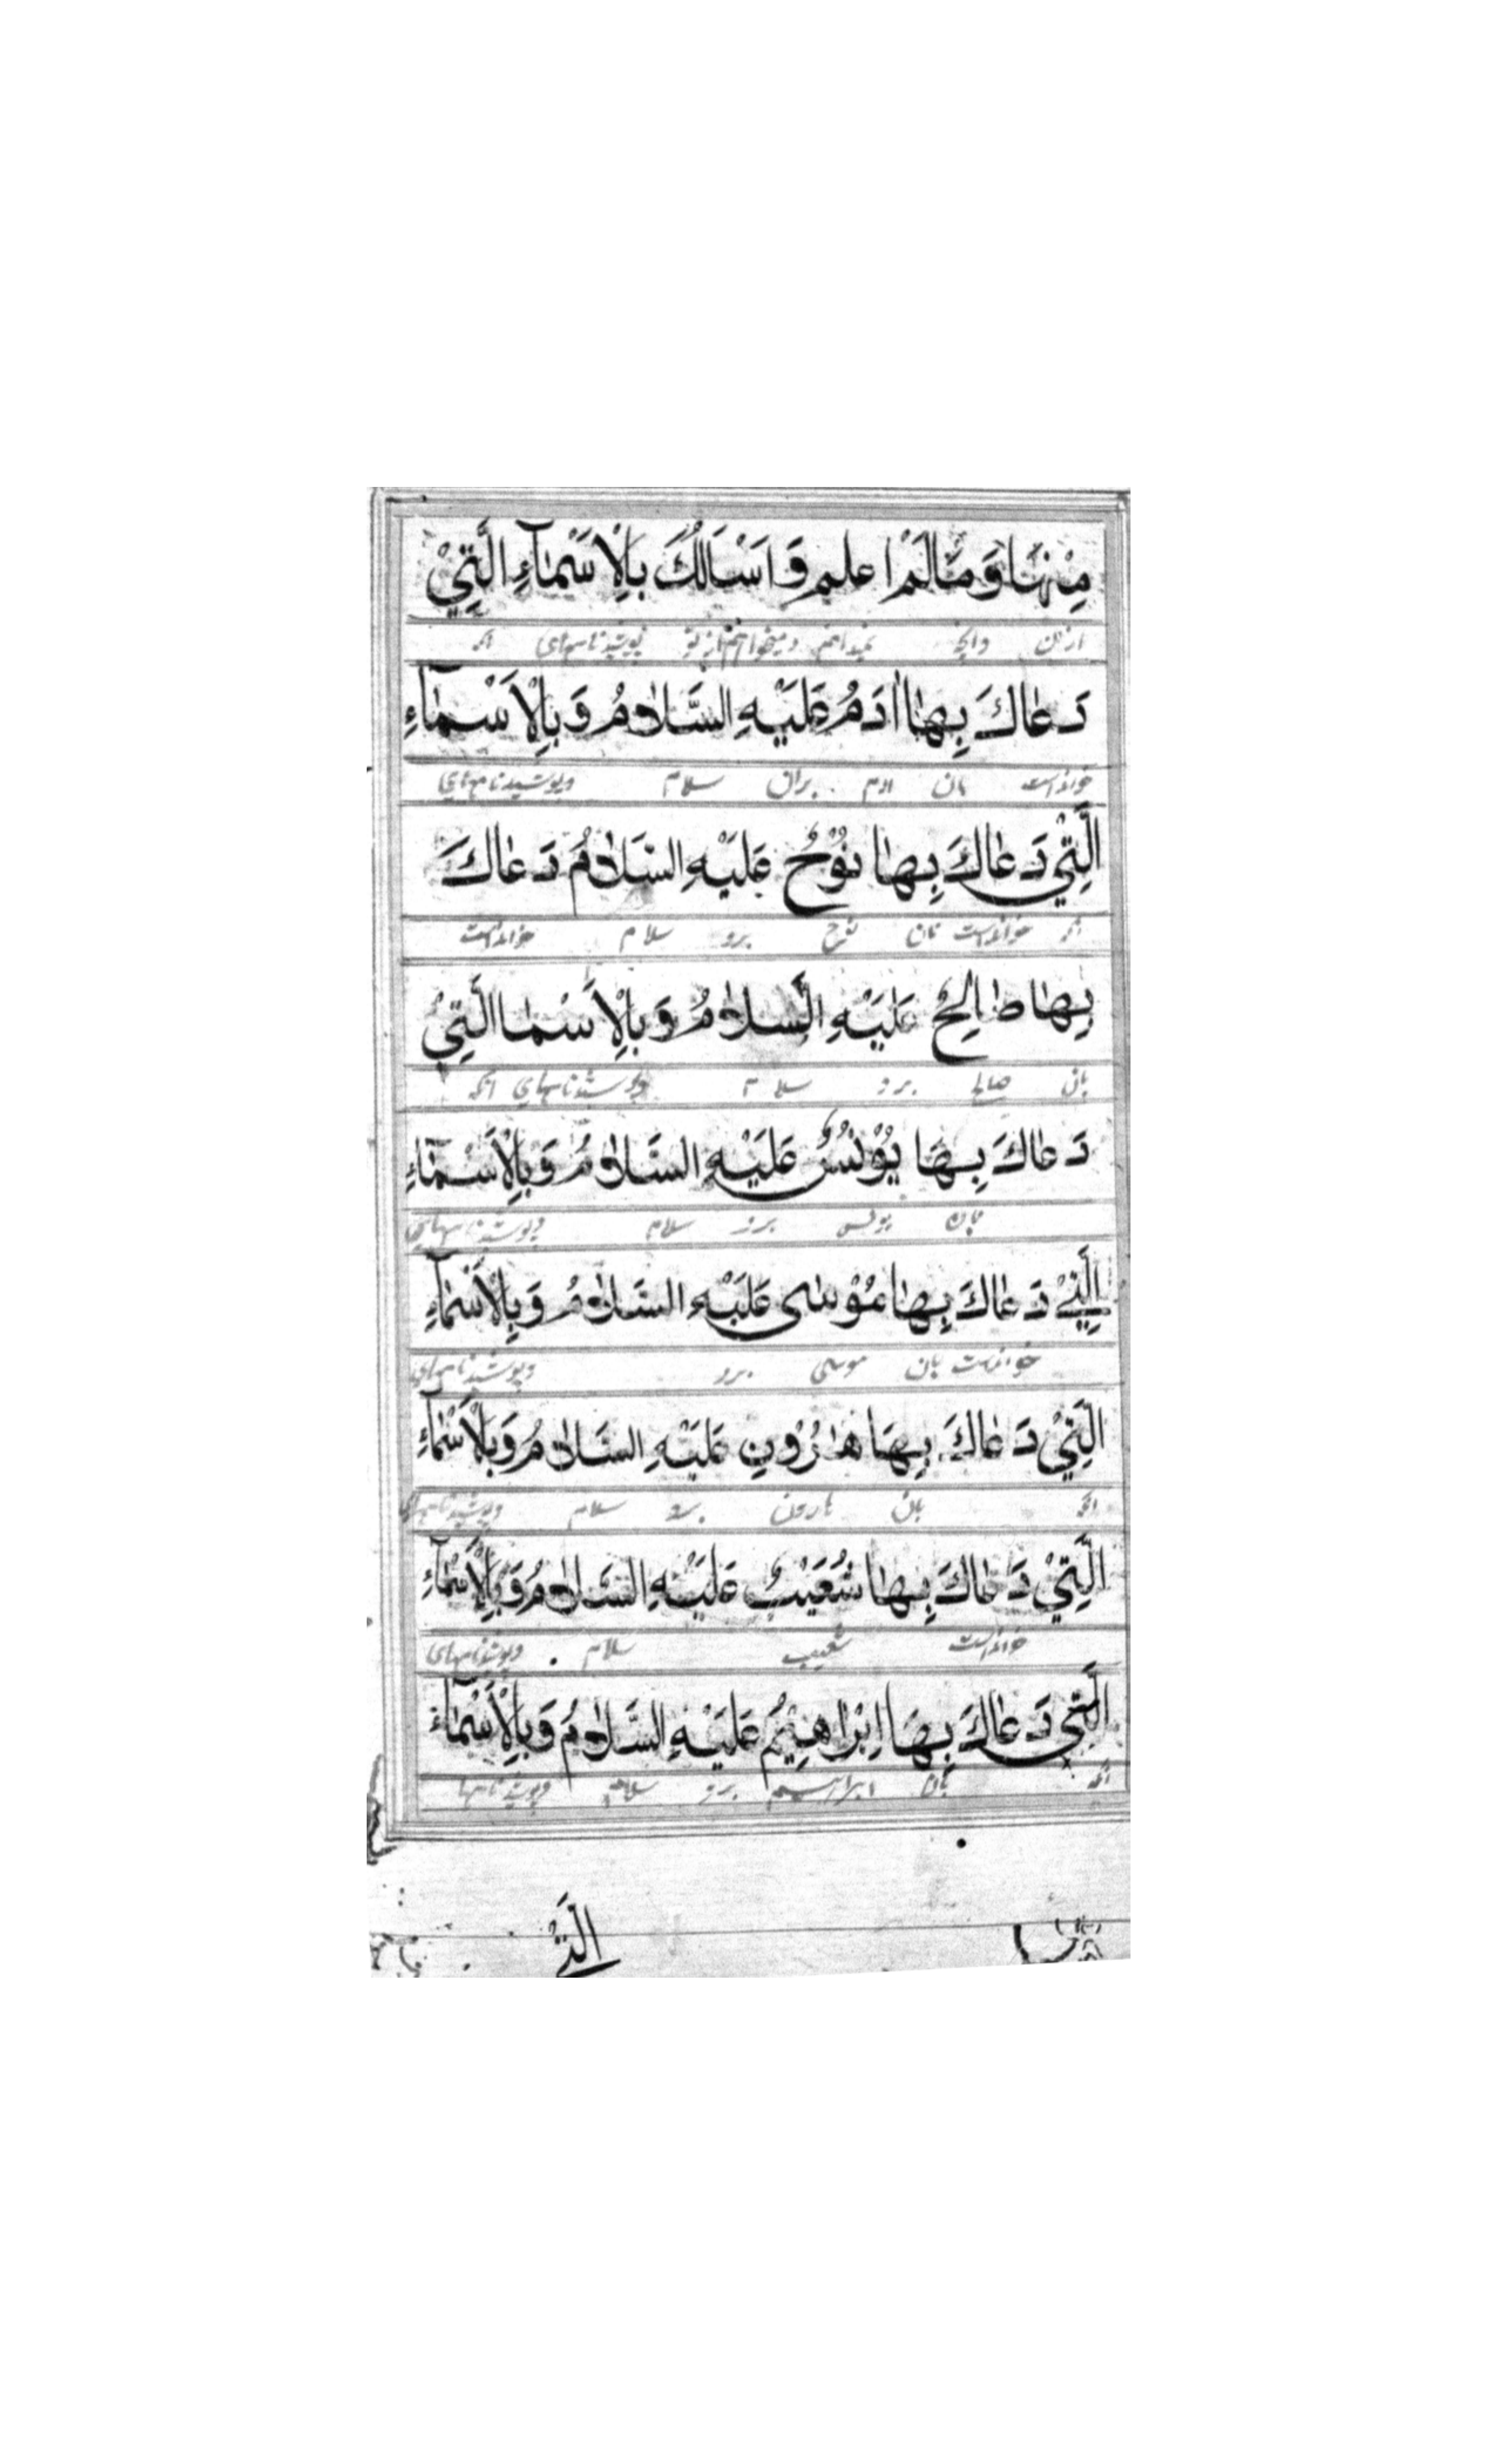 مِنْهَا وَمَا لَمْ اعلم وَ اَسْاَلُكَ بِالْاَسْمَآءِ الَّتِيْ
ازان وانچه نمیدانم و میخواهم از تو پوشیدنامهای انکه
دَعَاكَ بِهَا اٰدَمُ عَلَيْهِ السَّلَامُ وَ بِالْاَسْمَآءِ
خوانداست بان ادم بران سلام وپوشیدنامهای
الَّتِيْ دَعَاكَ بِهَا نُوْحٌ عَلَيْهِ السَّلَامُ دَعَاكَ
انکه خوانداست بان نوح برو سلام خوانداست
بِهَا صَالِحٌ عَلَيْهِ السَّلَامُ وَ بِالْاَسْمَا الَّتِيْ
بان صالح برو سلام وپوشیدنامهای انکه
دَعَاكَ بِهَا يُوْنُسُ عَلَيْهِ السَّلَامُ وَ بِالْاَسْمَآءِ
بان یونس برو سلام وپوشیدنامهای
الَّتِيْ دَعَاكَ بِهَا مُوْسٰى عَلَيْهِ السَّلَامُ وَ بِالْاَسْمَآءِ
خوانداست بان موسی برو وپوشیدنامهای
الَّتِيْ دَعَاكَ بِهَا هٰرُوْنِ عَلَيْهِ السَّلَامُ وَ بِالْاَسْمَآءِ
انکه بان هارون برو سلام وپوشیدنامهای
الَّتِيْ دَعَاكَ بِهَا شُعَيْبٌ عَلَيْهِ السَّلَامُ وَ بِالْاَسْمَآءِ
خوانداست شعیب سلام وپوشیدنامهای
الَّتِيْ دَعَاكَ بِهَا اِبْرَاهِيْمُ عَلَيْهِ السَّلَامُ وَ بِالْاَسْمَآءِ
انکه بان ابراهیم برو سلام وپوشیدنامها
الَّتِيْ